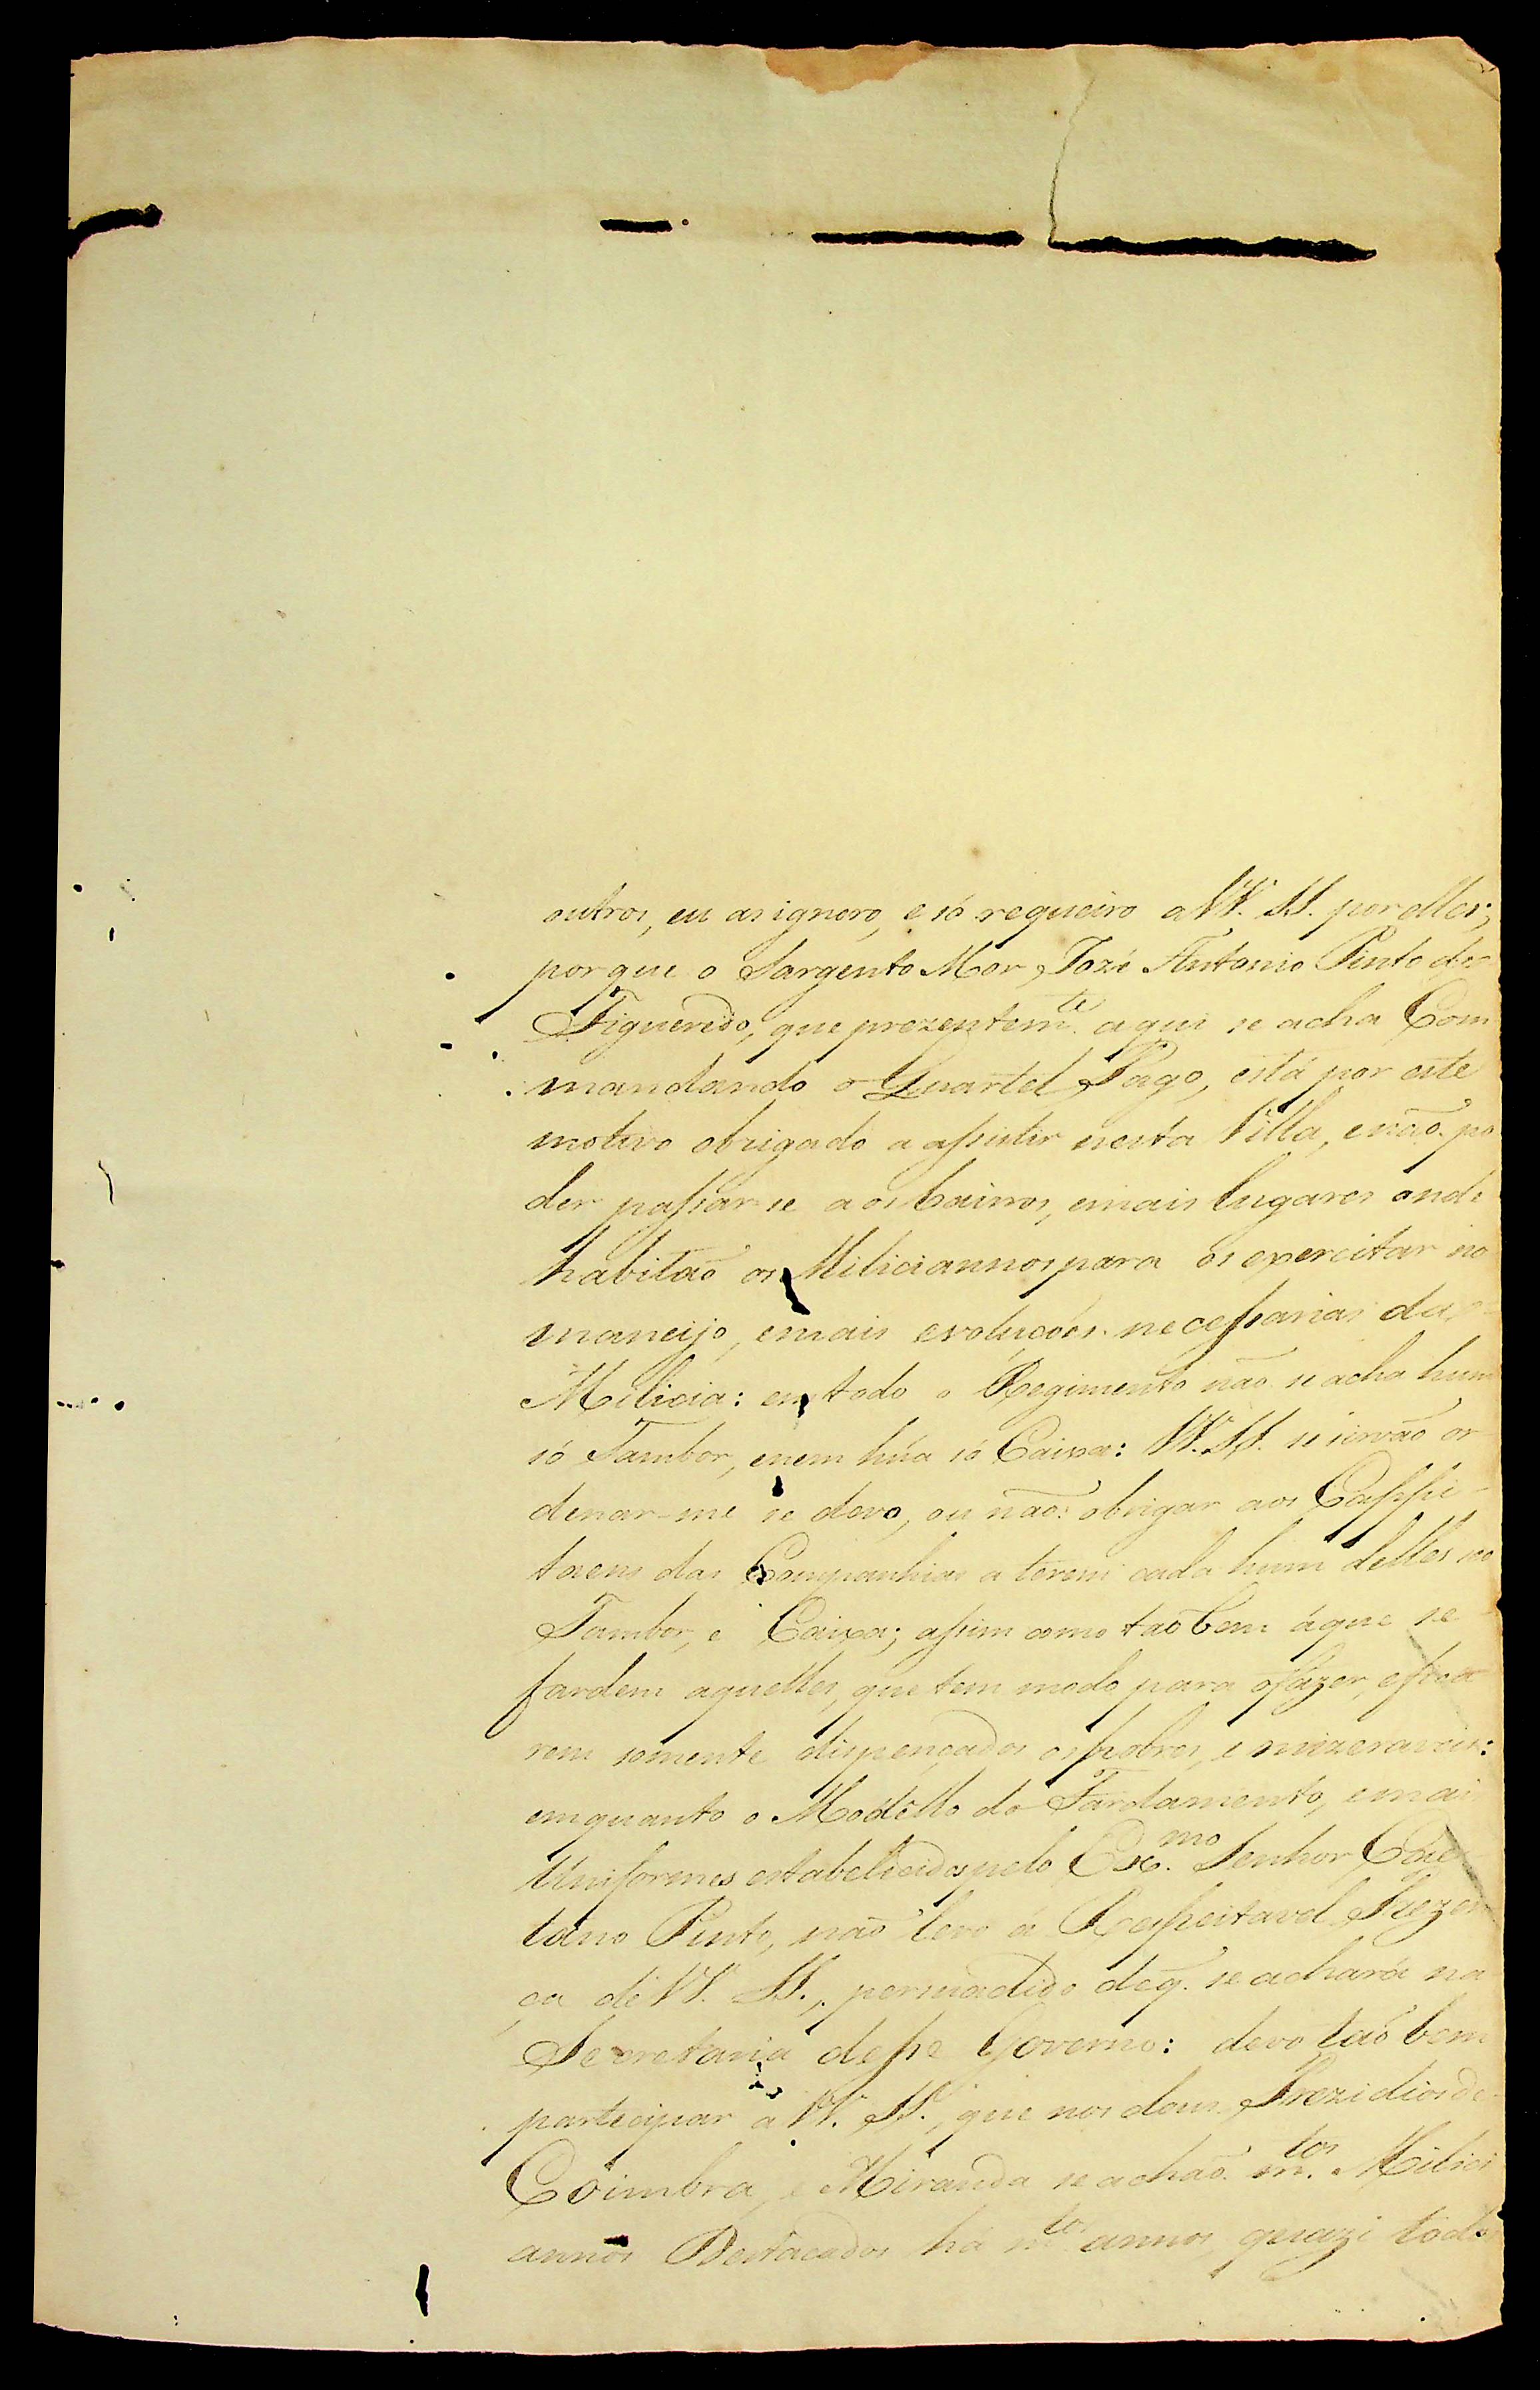 outros, eu as ignoro, e só requeiro a VV. SS. por elles;
por que o Sargento Mor Jozé Antonio Pinto de
Figueredo, que prezentemᵗᵉ aqui se acha Com
mandando o Quartel Pago, está por este
motivo obrigado a assistir nesta Villa, e não po
der passar se aos bairros, e mais lugares onde
habitaõ os Miliciannos para os exercitar no
maneijo, e mais evoluçoẽs necessarias da
Milicia: em todo o Regimento não se acha hum
só Tambor, e nem húa só Caixa: VV. SS. se sirvão or
denar-me se devo, ou não obrigar aos Cappi-
taens das Companhias a terem cada hum delles
Tambor, e Caixa; assim como taõbem áque se
fardem aquelles, que tem modo para o fazer, e fica
rem somente dispençados os pobres, e mizeraveis:
emquanto o Modêllo do Fardamento, e mais
Uniformes estabelicidos pelo Exᵐᵒ. Senhor Cae
tano Pinto, não levo á Respeitavel Prezen
ça de VV. SS., persuadido deq̃. se achará na
Secretaria desse Governo: devo taõ bem
participar a VV. SS., que nos dous Prezidios de
Coimbra, e Miranda se achão mᵗᵒˢ. Milici
annos Destacados há mᵗᵒˢ annos, quazi todos